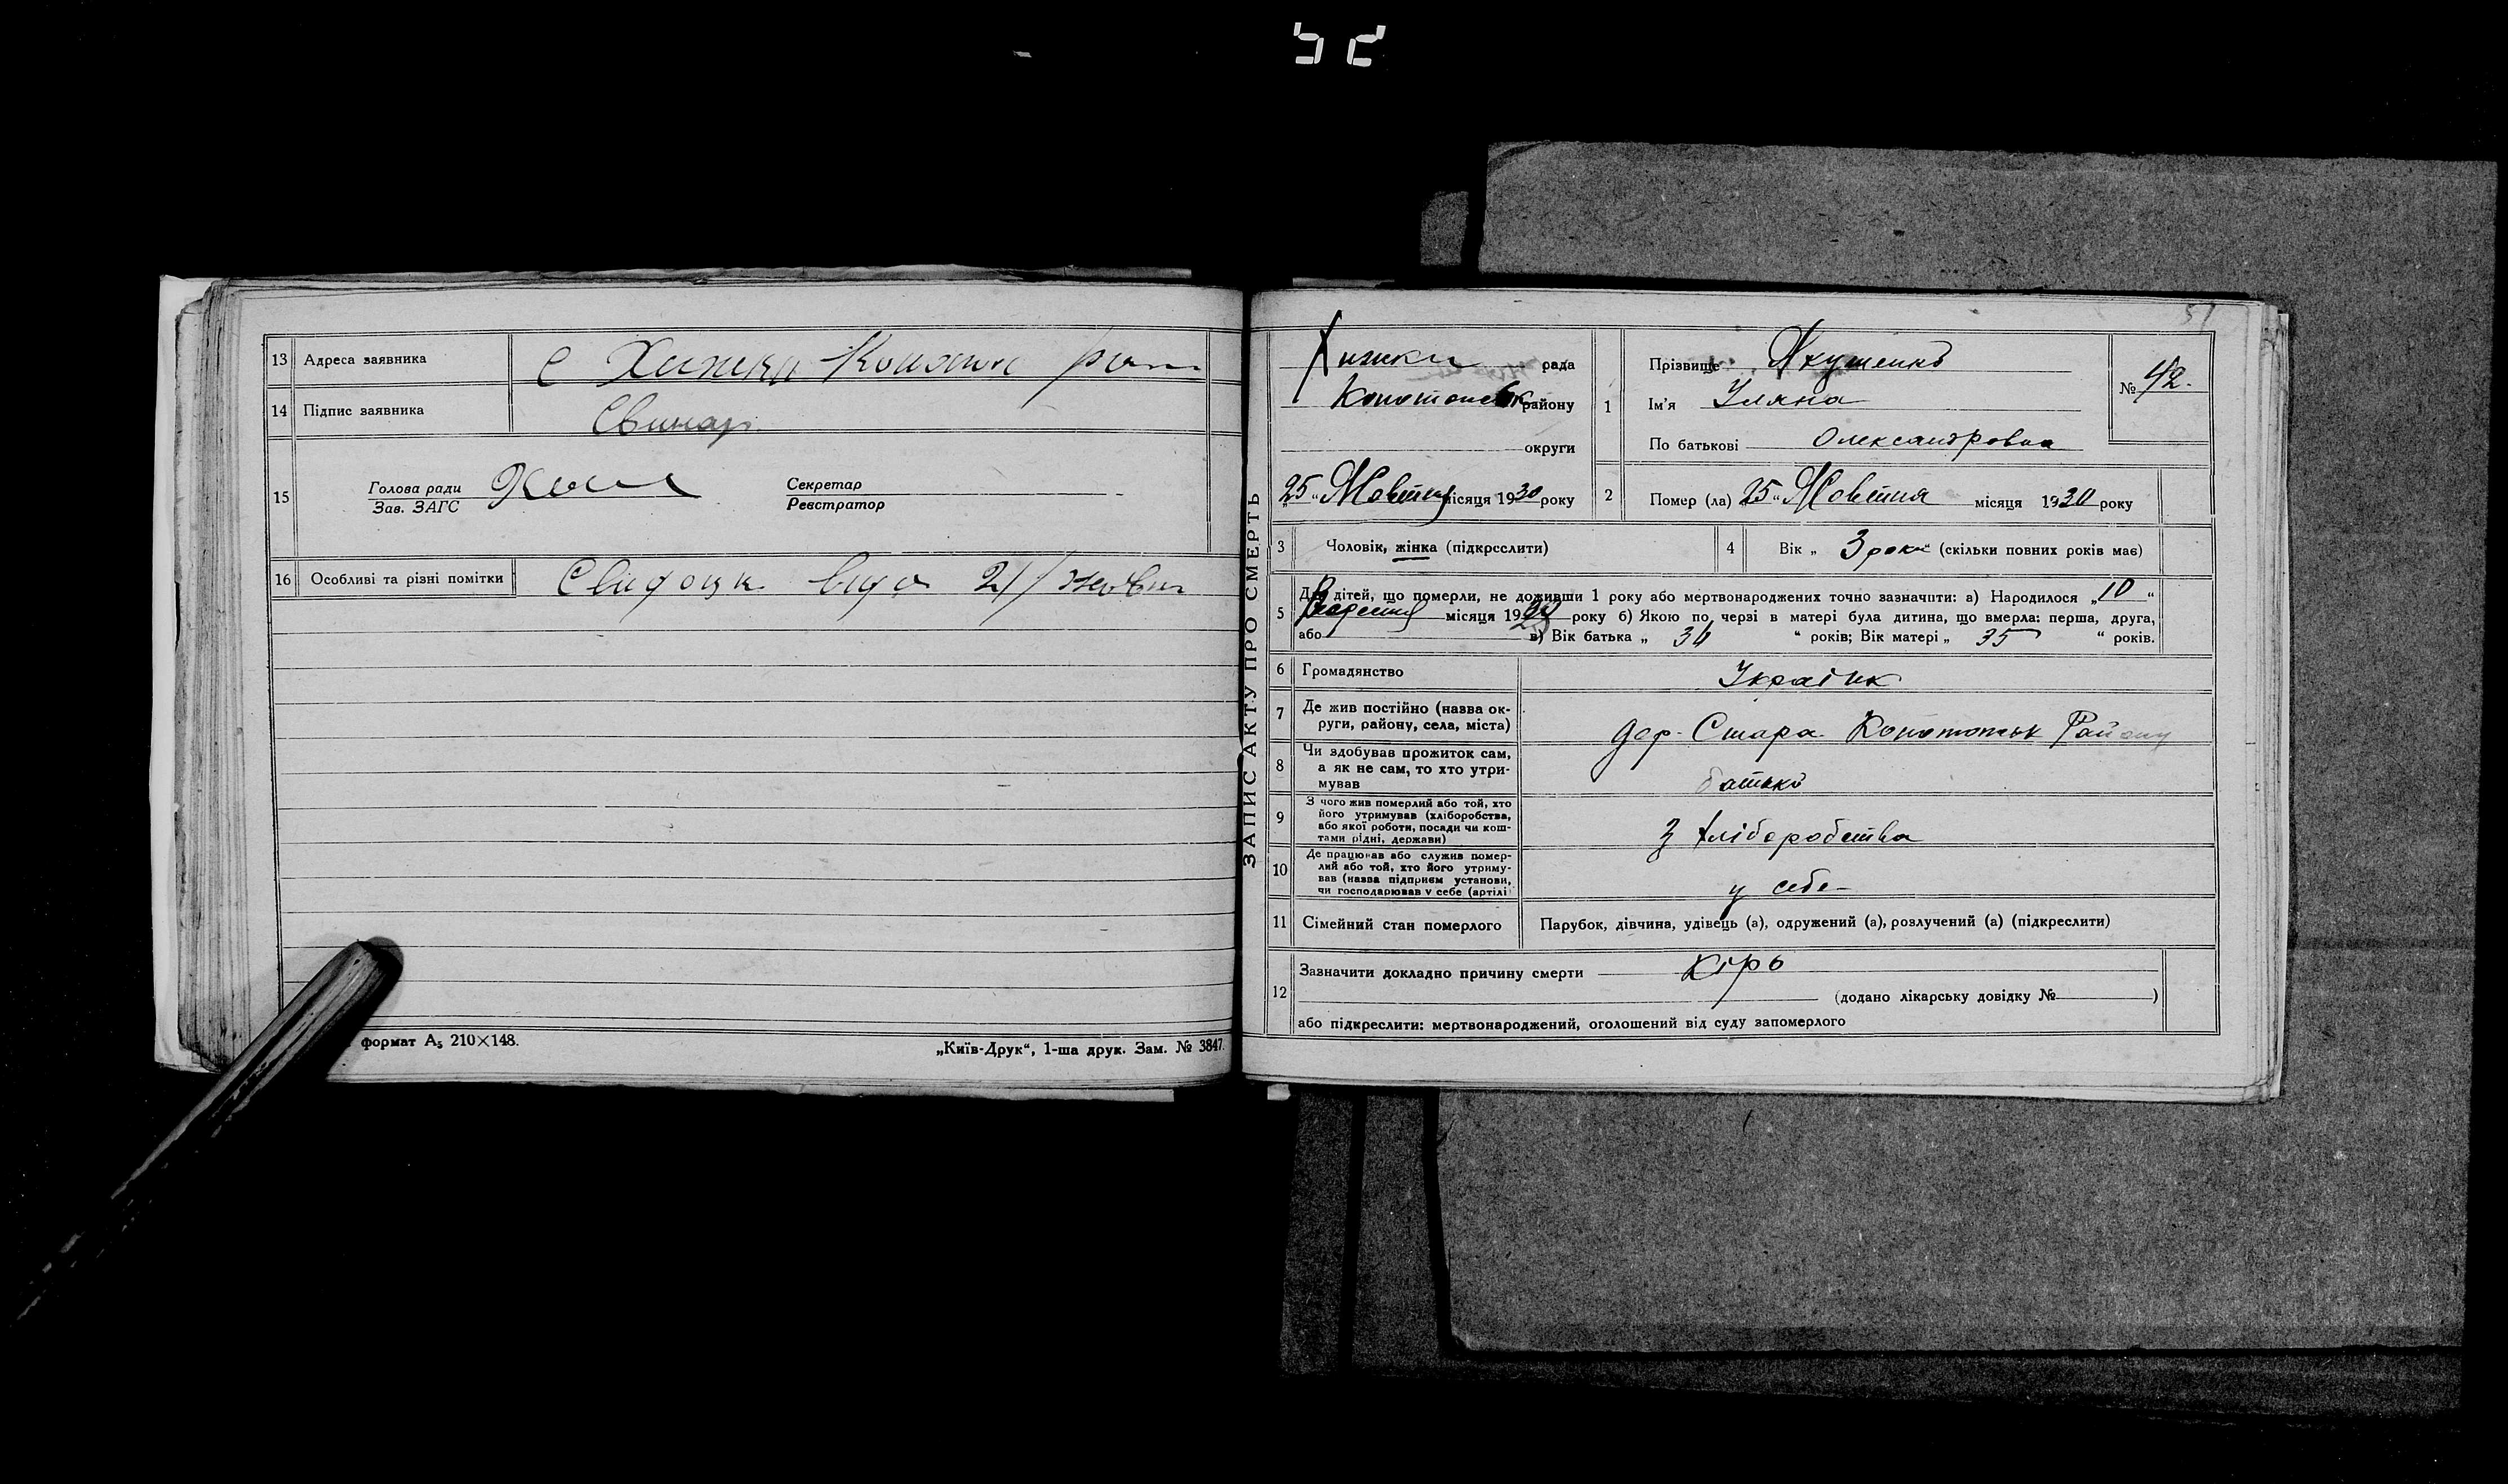 52
13 Адреса заявника с Хижки Коното рай
14 Підпис заявника Свинар
15 Голова ради
Зав. ЗАГС
Секретар
Реєстратор
16 Особливі та різні помітки Свідоцк вида 21/ жовтн
формат А₅ 210×148.
„Київ-Друк“, 1-ша друк. Зам. № 3847.
ЗАПИС АКТУ ПРО СМЕРТЬ
51
Хижки рада
Конотопськ району
округи
„25“ Жовтня місяця 1930 року
1 Прізвище Якушенко
Ім'я Уляна
По батькові Олександровна
№ 42.
2 Помер (ла) „25“ Жовтня місяця 1930 року
3 Чоловік, жінка (підкреслити)
4 Вік „ 3 роки “ (скільки повних років має)
5 Для дітей, що померли, не доживши 1 року або мертвонароджених точно зазначити: а) Народилося „10“
місяця 19 року б) Якою по черзі в матері була дитина, що вмерла: перша, друга,
або в) Вік батька „ 36 “ років; Вік матері „ 35 “ років.
6 Громадянство Українк
7 Де жив постійно (назва ок-
руги, району, села, міста) дер. Стара Конотопськ Району
8 Чи здобував прожиток сам,
а як не сам, то хто утри-
мував батько
9 З чого жив померлий або той, хто
його утримував (хліборобства,
або якої роботи, посади чи кош-
тами рідні, держави) З хліборобства
10 Де працював або служив помер-
лий або той, хто його утриму-
вав (назва підприєм установи,
чи господарював у себе (артілі у себе
11 Сімейний стан померлого Парубок, дівчина, удівець (а), одружений (а), розлучений (а) (підкреслити)
12 Зазначити докладно причину смерти кір
(додано лікарську довідку № )
або підкреслити: мертвонароджений, оголошений від суду запомерлого